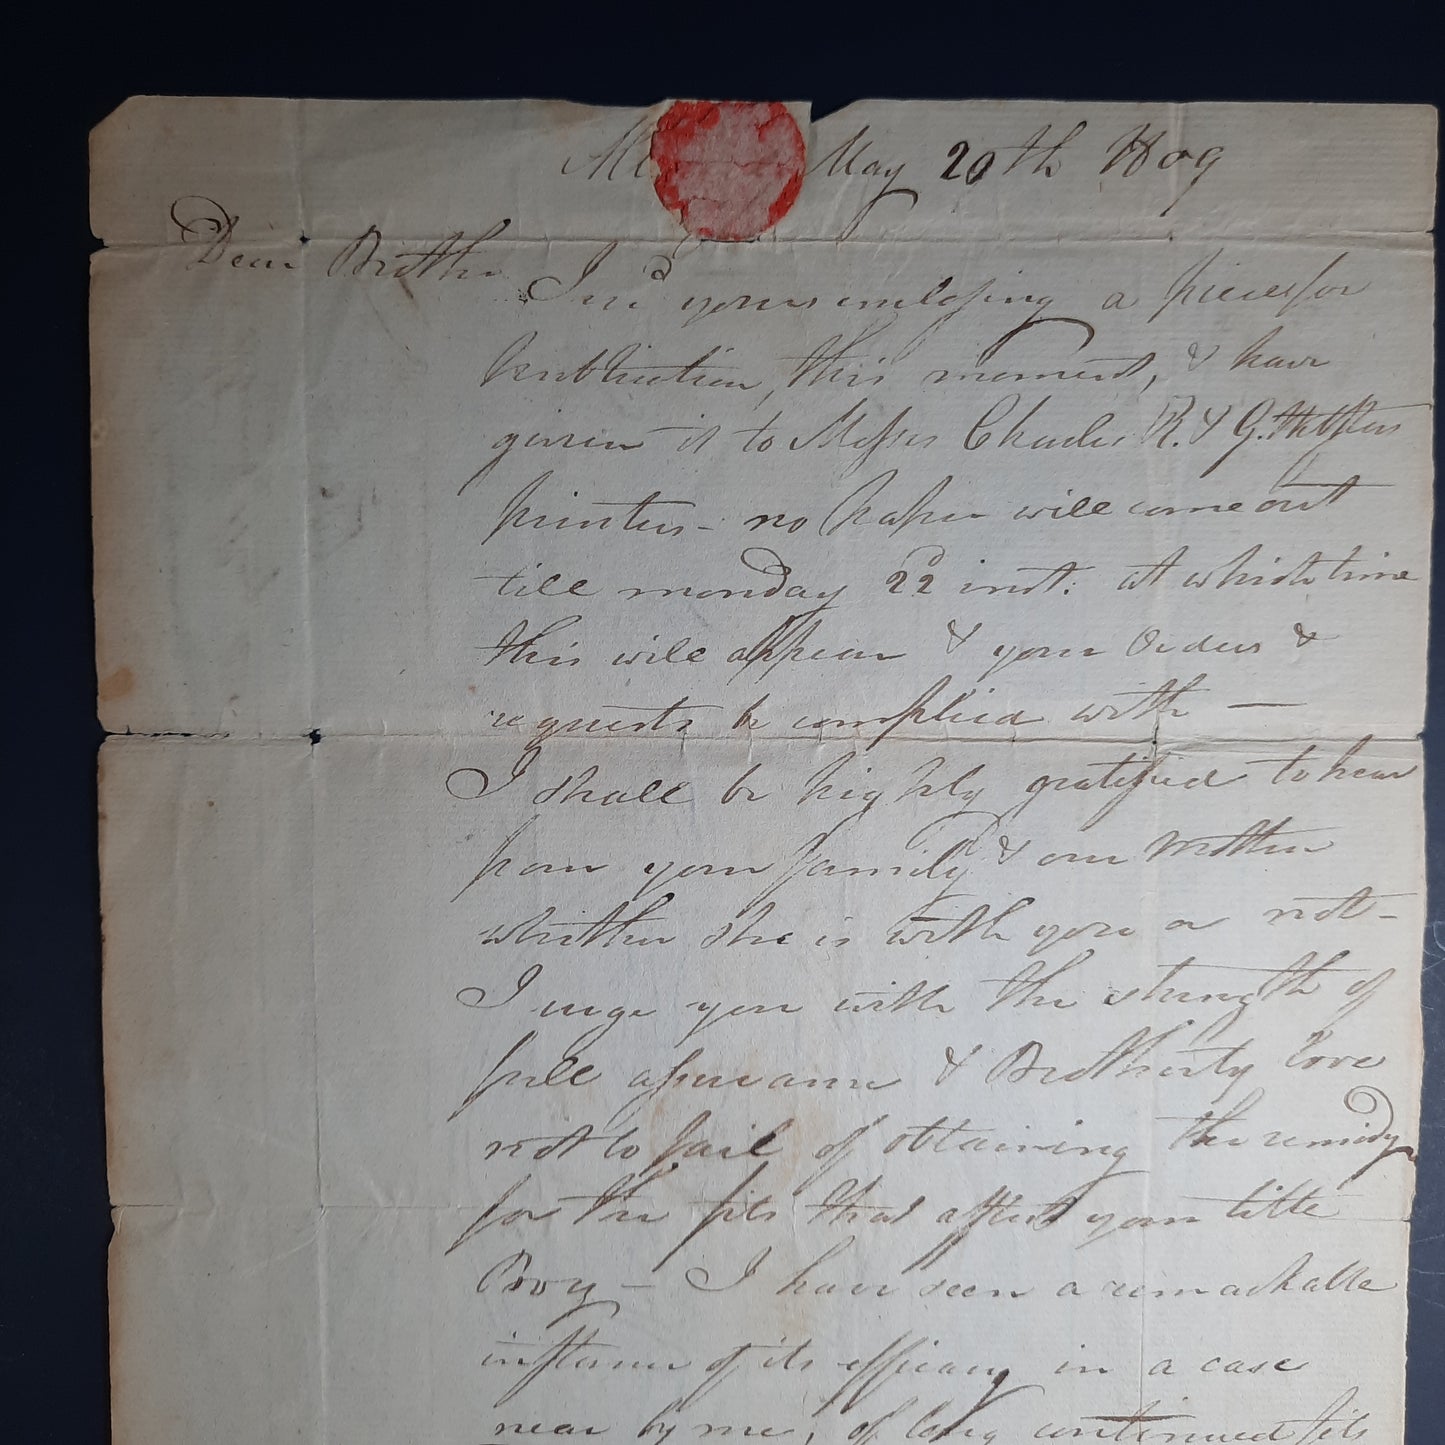 May 20th 1809
Dear Brother
I rec'd yours inclosing a piece for
Publication, this moment, & have
given it to Messrs Charles R. & G.
printers - no paper will come out
till monday 22d inst. at which time
this will appear & your Orders &
requests be complied with —
I shall be highly gratified to hear
from your family & our Mother
whither she is with you or not -
I urge you with the strength of
full assurance & Brotherly Love
not to fail of obtaining the remidy
for the fits that afflict your little
Boy - I have seen a remarkable
instance of its efficacy in a case
near by me, of long continued fits